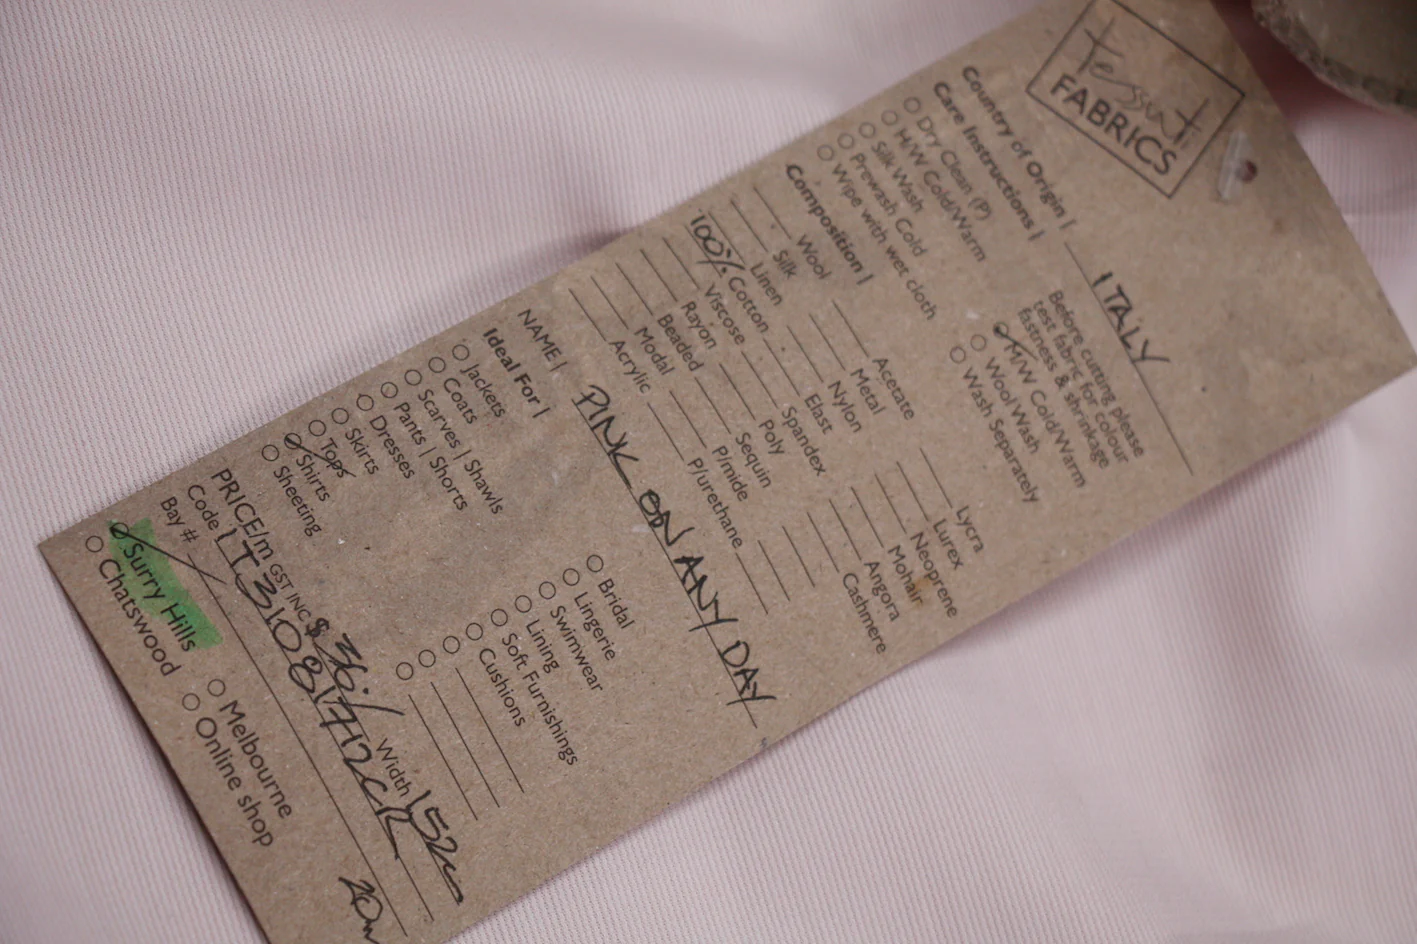 Tessuti
FABRICS
Country of Origin | ITALY
Care Instructions |
Dry Clean (P)
H/W Cold/Warm
Silk Wash
Prewash Cold
Wipe with wet cloth
Before cutting please
test fabric for colour
fastness & shrinkage
M/W Cold/Warm
Wool Wash
Wash Separately
Composition |
Wool
Silk
Linen
100% Cotton
Viscose
Rayon
Beaded
Modal
Acrylic
Acetate
Metal
Nylon
Elast
Spandex
Poly
Sequin
P/mide
P/urethane
Lycra
Lurex
Neoprene
Mohair
Angora
Cashmere
NAME | PINK ON ANY DAY
Ideal For |
Jackets
Coats
Scarves | Shawls
Pants | Shorts
Dresses
Skirts
Tops
Shirts
Sheeting
Bridal
Lingerie
Swimwear
Lining
Soft Furnishings
Cushions
PRICE/m GST INC $ 36 Width 152c
Code IT31081712CR
Bay # 20m
Surry Hills
Chatswood
Melbourne
Online shop